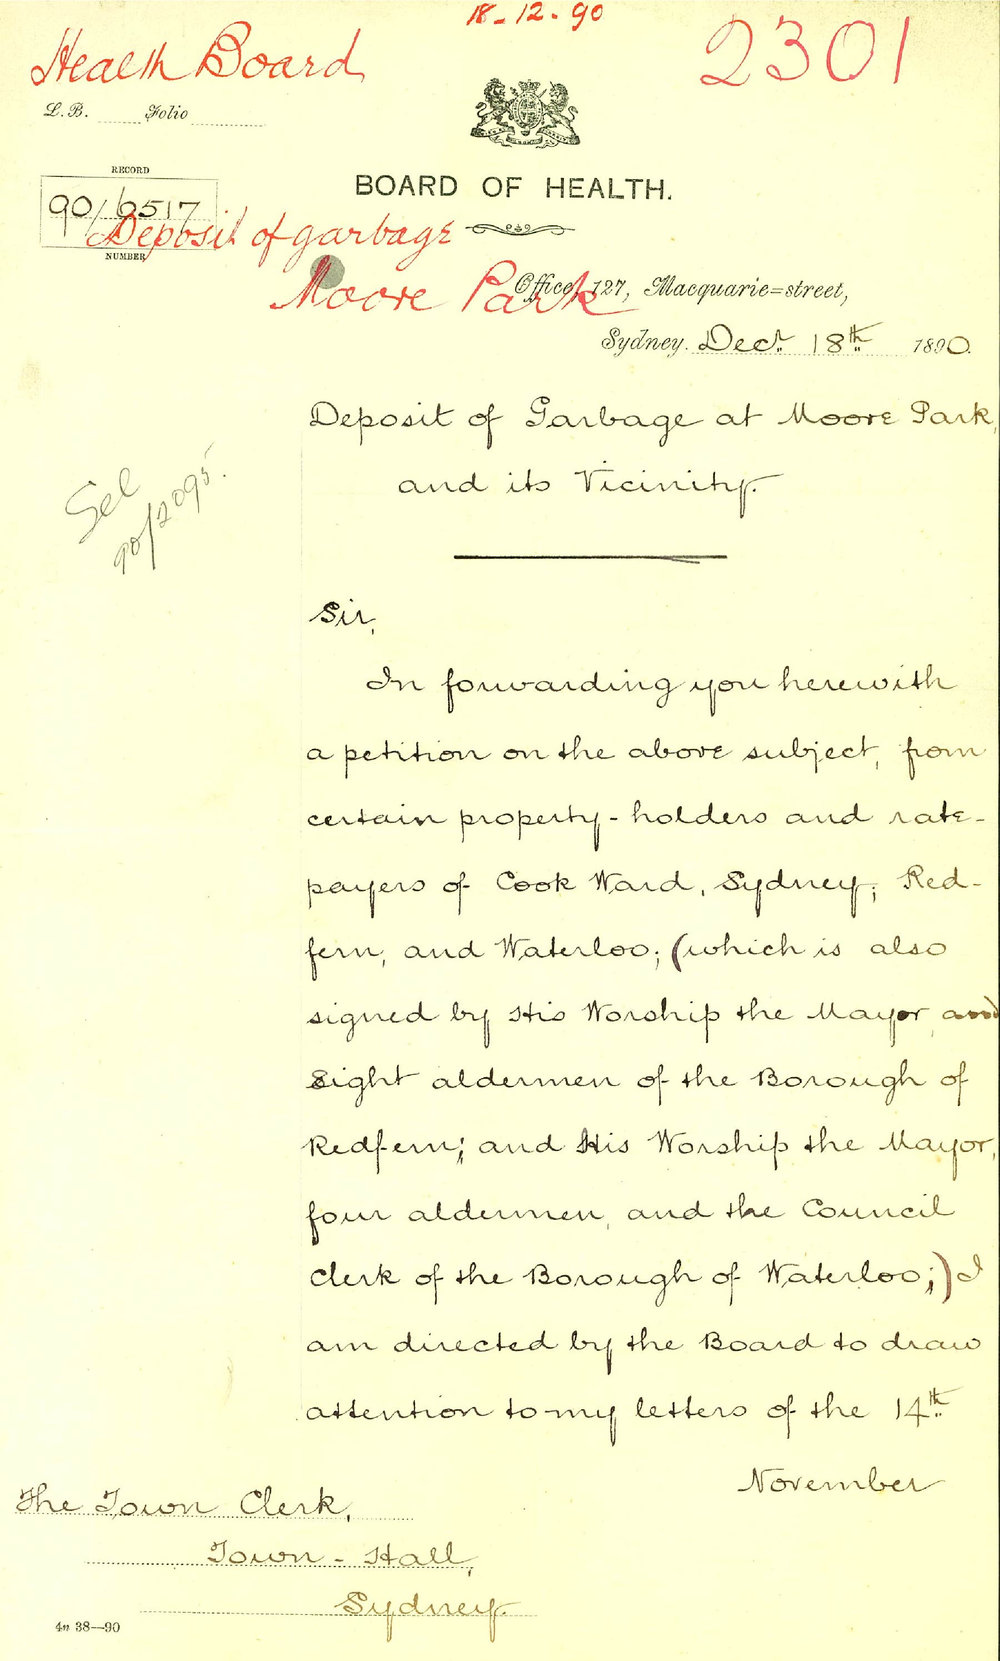 18-12-90
Health Board
2301
L.B. Folio
RECORD
90/6517
NUMBER
BOARD OF HEALTH.
Deposit of garbage
Moore Park
Office, 127, Macquarie=street,
Sydney. Decr. 18th 1890.
Deposit of Garbage at Moore Park,
and its Vicinity.
90/2095.
Sir,
In forwarding you herewith
a petition on the above subject, from
certain property-holders and rate-
payers of Cook Ward, Sydney; Red-
fern, and Waterloo; (which is also
signed by His Worship the Mayor and
eight aldermen of the Borough of
Redfern; and His Worship the Mayor,
four aldermen, and the Council
Clerk of the Borough of Waterloo;) I
am directed by the Board to draw
attention to my letters of the 14th
November
The Town Clerk,
Town-Hall,
Sydney.
4n 38—90